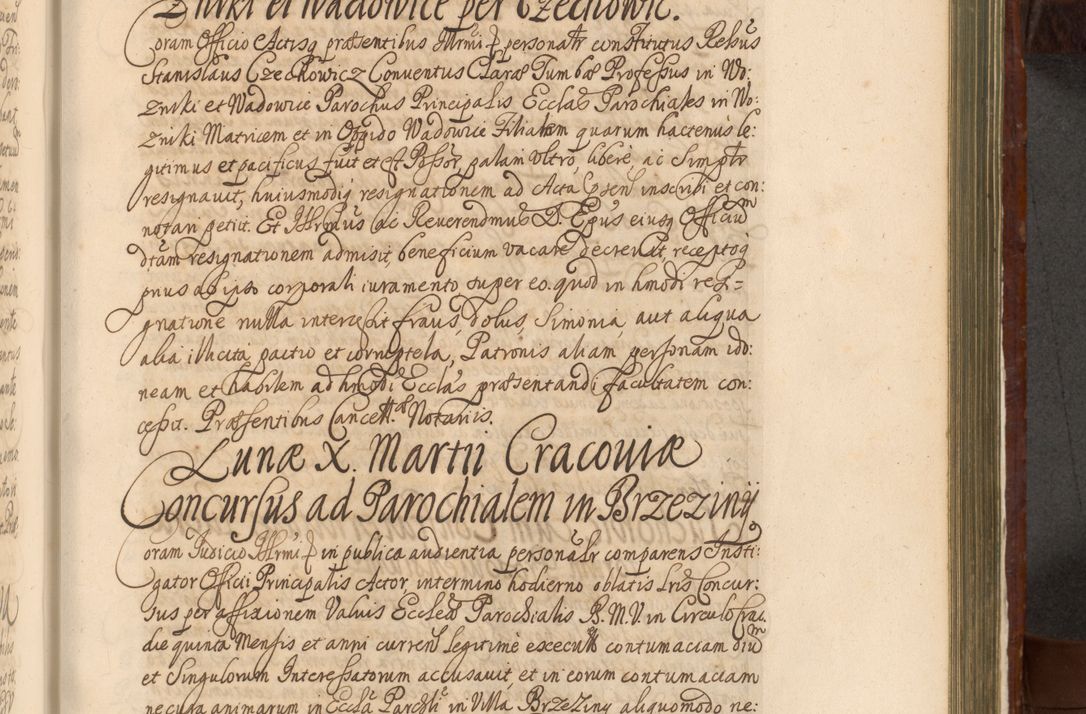 Zniki et Wadowice per Czechowic.
Coram Officio Actisq præsentibus Illrmi personalr constitutus Relsus
Stanislaus Czechowicz Conventus Claræ Tumbæ Professus in Wo:
zniki et Wadowice Parochus Principalis Ecclas Parochiales in Wo:
zniki Matricem et in Oppido Wadowice Filialem quarum hactenus le:
gitimus et pacificus fuit et est Possor, palam ultro, liberè ac Simplr
resignavit, huiusmodiq resignationem ad Acta præsen inscribi et con:
notari petiit. Et Illrmus ac Reverendmus D. Epus eiusq Officium
dtam resignationem admisit, beneficium vacare decrevit, receptoq
prius ab ipso corporali iuramento super eo, quod in hmodi resi=
gnatione nulla intercessit fraus, dolus, Simonia, aut aliqua
alia illicita pactio et corruptela, Patronis aliam personam ido:
neam et habilem ad hmodi Ecclas præsentandi facultatem con:
cessit. Præsentibus Cancell. Notariis.
Lunæ X. Martii Cracoviæ
Concursus ad Parochialem in Brzeziny
Coram Judicio Illrmi in publica audientia personalr comparens Insti:
gator Officii Principalis Actor, in termino hodierno oblatis Lris Concur:
sus per affixionem Valvis Ecclæ Parochialis B. M. V. in Circulo Crac.
die quinta Mensis et anni curren legitimè executis contumaciam oium
et Singulorum Interessatorum accusavit, et in eorum contumaciam
ne cura animarum in Eccla Parchli in Villa Brzeziny aliquomodo ne: